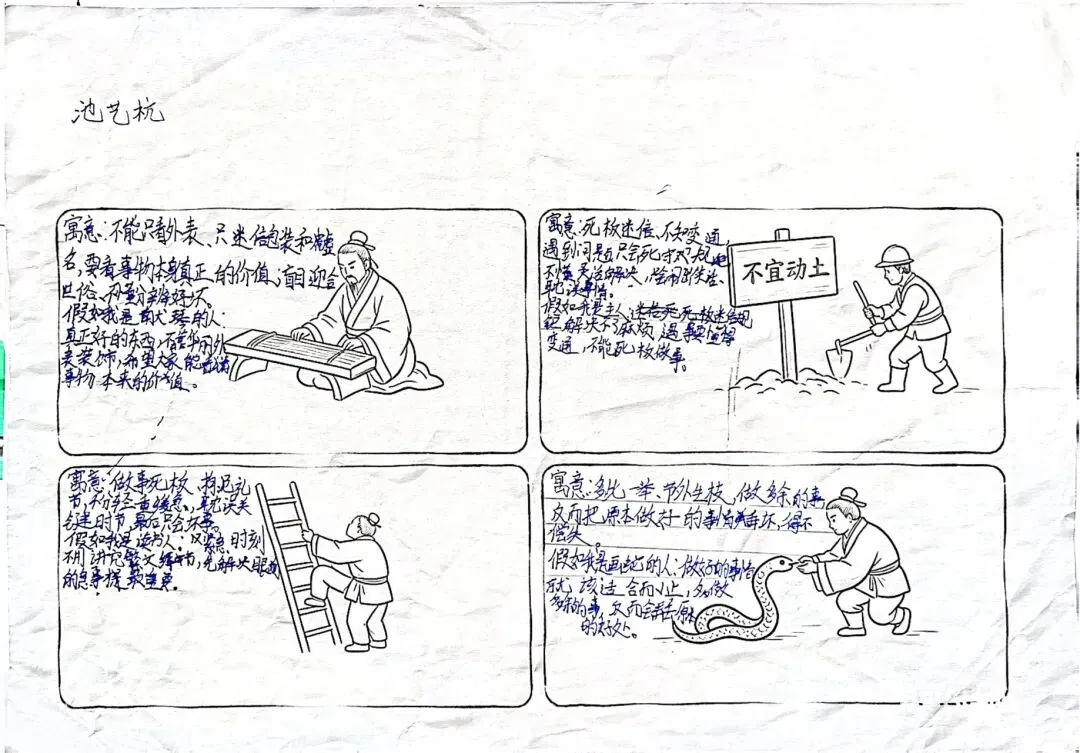 池艺杭
寓意:不能只看外表、只迷信包装和虚
名,要看事物本身真正的价值,盲目迎合
世俗、不懂分辨好坏。
假如我是献琴的人:
真正好的东西,不需要用外
表装饰,希望大家能看清
事物本来的价值。
寓意:死板迷信、不知变通,
遇到问题只会死守规矩
不懂灵活解决,
耽误事情。
假如我是主人:
解决不了麻烦,遇事要懂得
变通,不能死板做事。
不宜动土
寓意:做事死板、拘泥礼
节,不分轻重缓急,耽误关
键时节,最后只会坏事。
假如我是读书人:紧急时刻
不用讲究繁文缛节,先解决眼前
的急事才最重要。
寓意:多此一举、节外生枝,做多余的事
反而把原本做好的事情弄坏,得不
偿失。
假如我是画蛇的人:做好的事情
就应该适合而止,多做
多余的事,反而会失去原本
的好处。